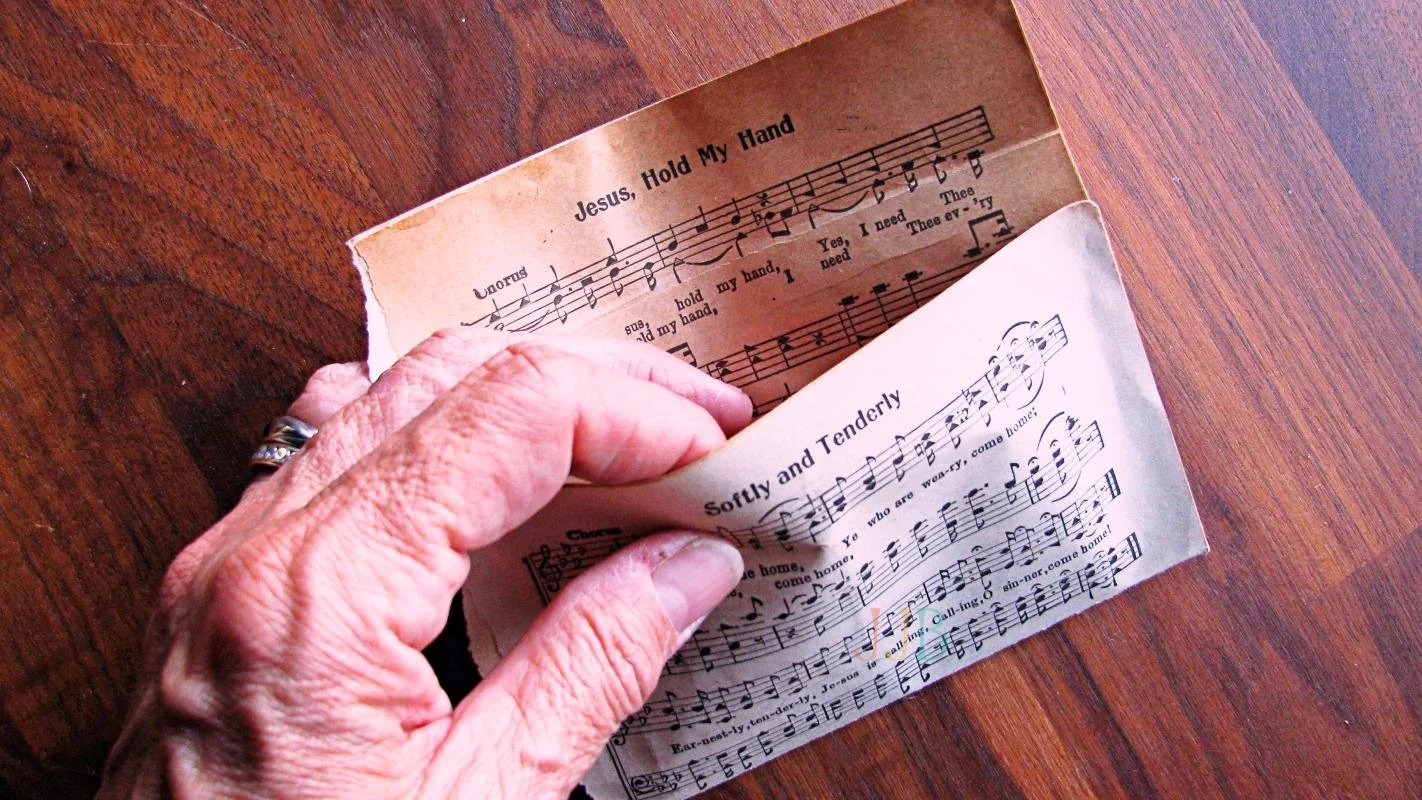 Jesus, Hold My Hand
Chorus
sus, hold my hand, I need Thee
old my hand, Yes, I need Thee ev-'ry
Softly and Tenderly
Chorus
come home, Ye who are wea-ry, come home;
come home,
Ear-nest-ly, ten-der-ly, Je-sus is call-ing, Call-ing, O sin-ner, come home!
JJR